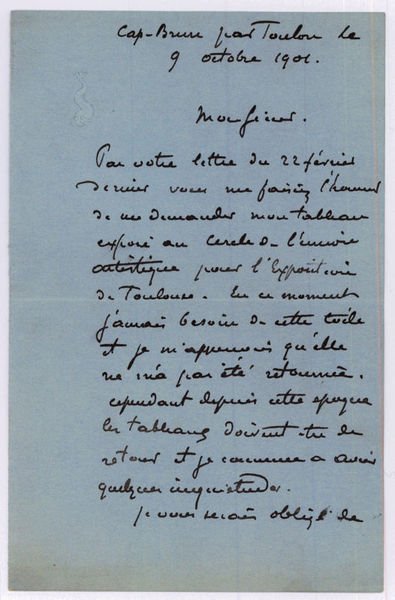 Cap-Brun par Toulon le
9 octobre 1901.
Monsieur.
Par votre lettre du 22 février
dernier vous me faisiez l'honneur
de me demander mon tableau
exposé au Cercle de l'union
artistique pour l'Exposition
de Toulouse. En ce moment
j'aurais besoin de cette toile
et je m'aperçois qu'elle
ne m'a pas été retournée.
cependant depuis cette époque
les tableaux doivent être de
retour et je commence a avoir
quelques inquiétudes.
je vous serais obligé de